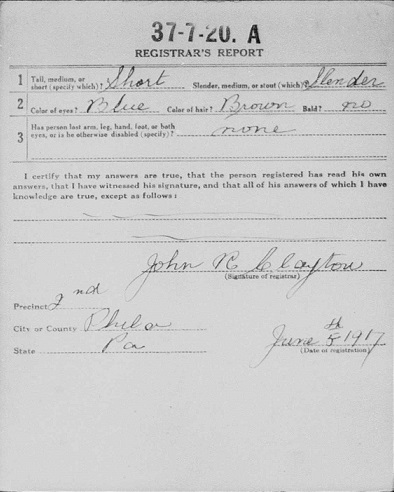 37-7-20. A
REGISTRAR'S REPORT
1 Tall, medium, or short (specify which)? Short Slender, medium, or stout (which)? Slender
2 Color of eyes? Blue Color of hair? Brown Bald? no
3 Has person lost arm, leg, hand, foot, or both eyes, or is he otherwise disabled (specify)? none
I certify that my answers are true, that the person registered has read his own
answers, that I have witnessed his signature, and that all of his answers of which I have
knowledge are true, except as follows:
John R Clayton
(Signature of registrar)
Precinct 2nd
City or County Phila
State Pa
June 5th 1917
(Date of registration)